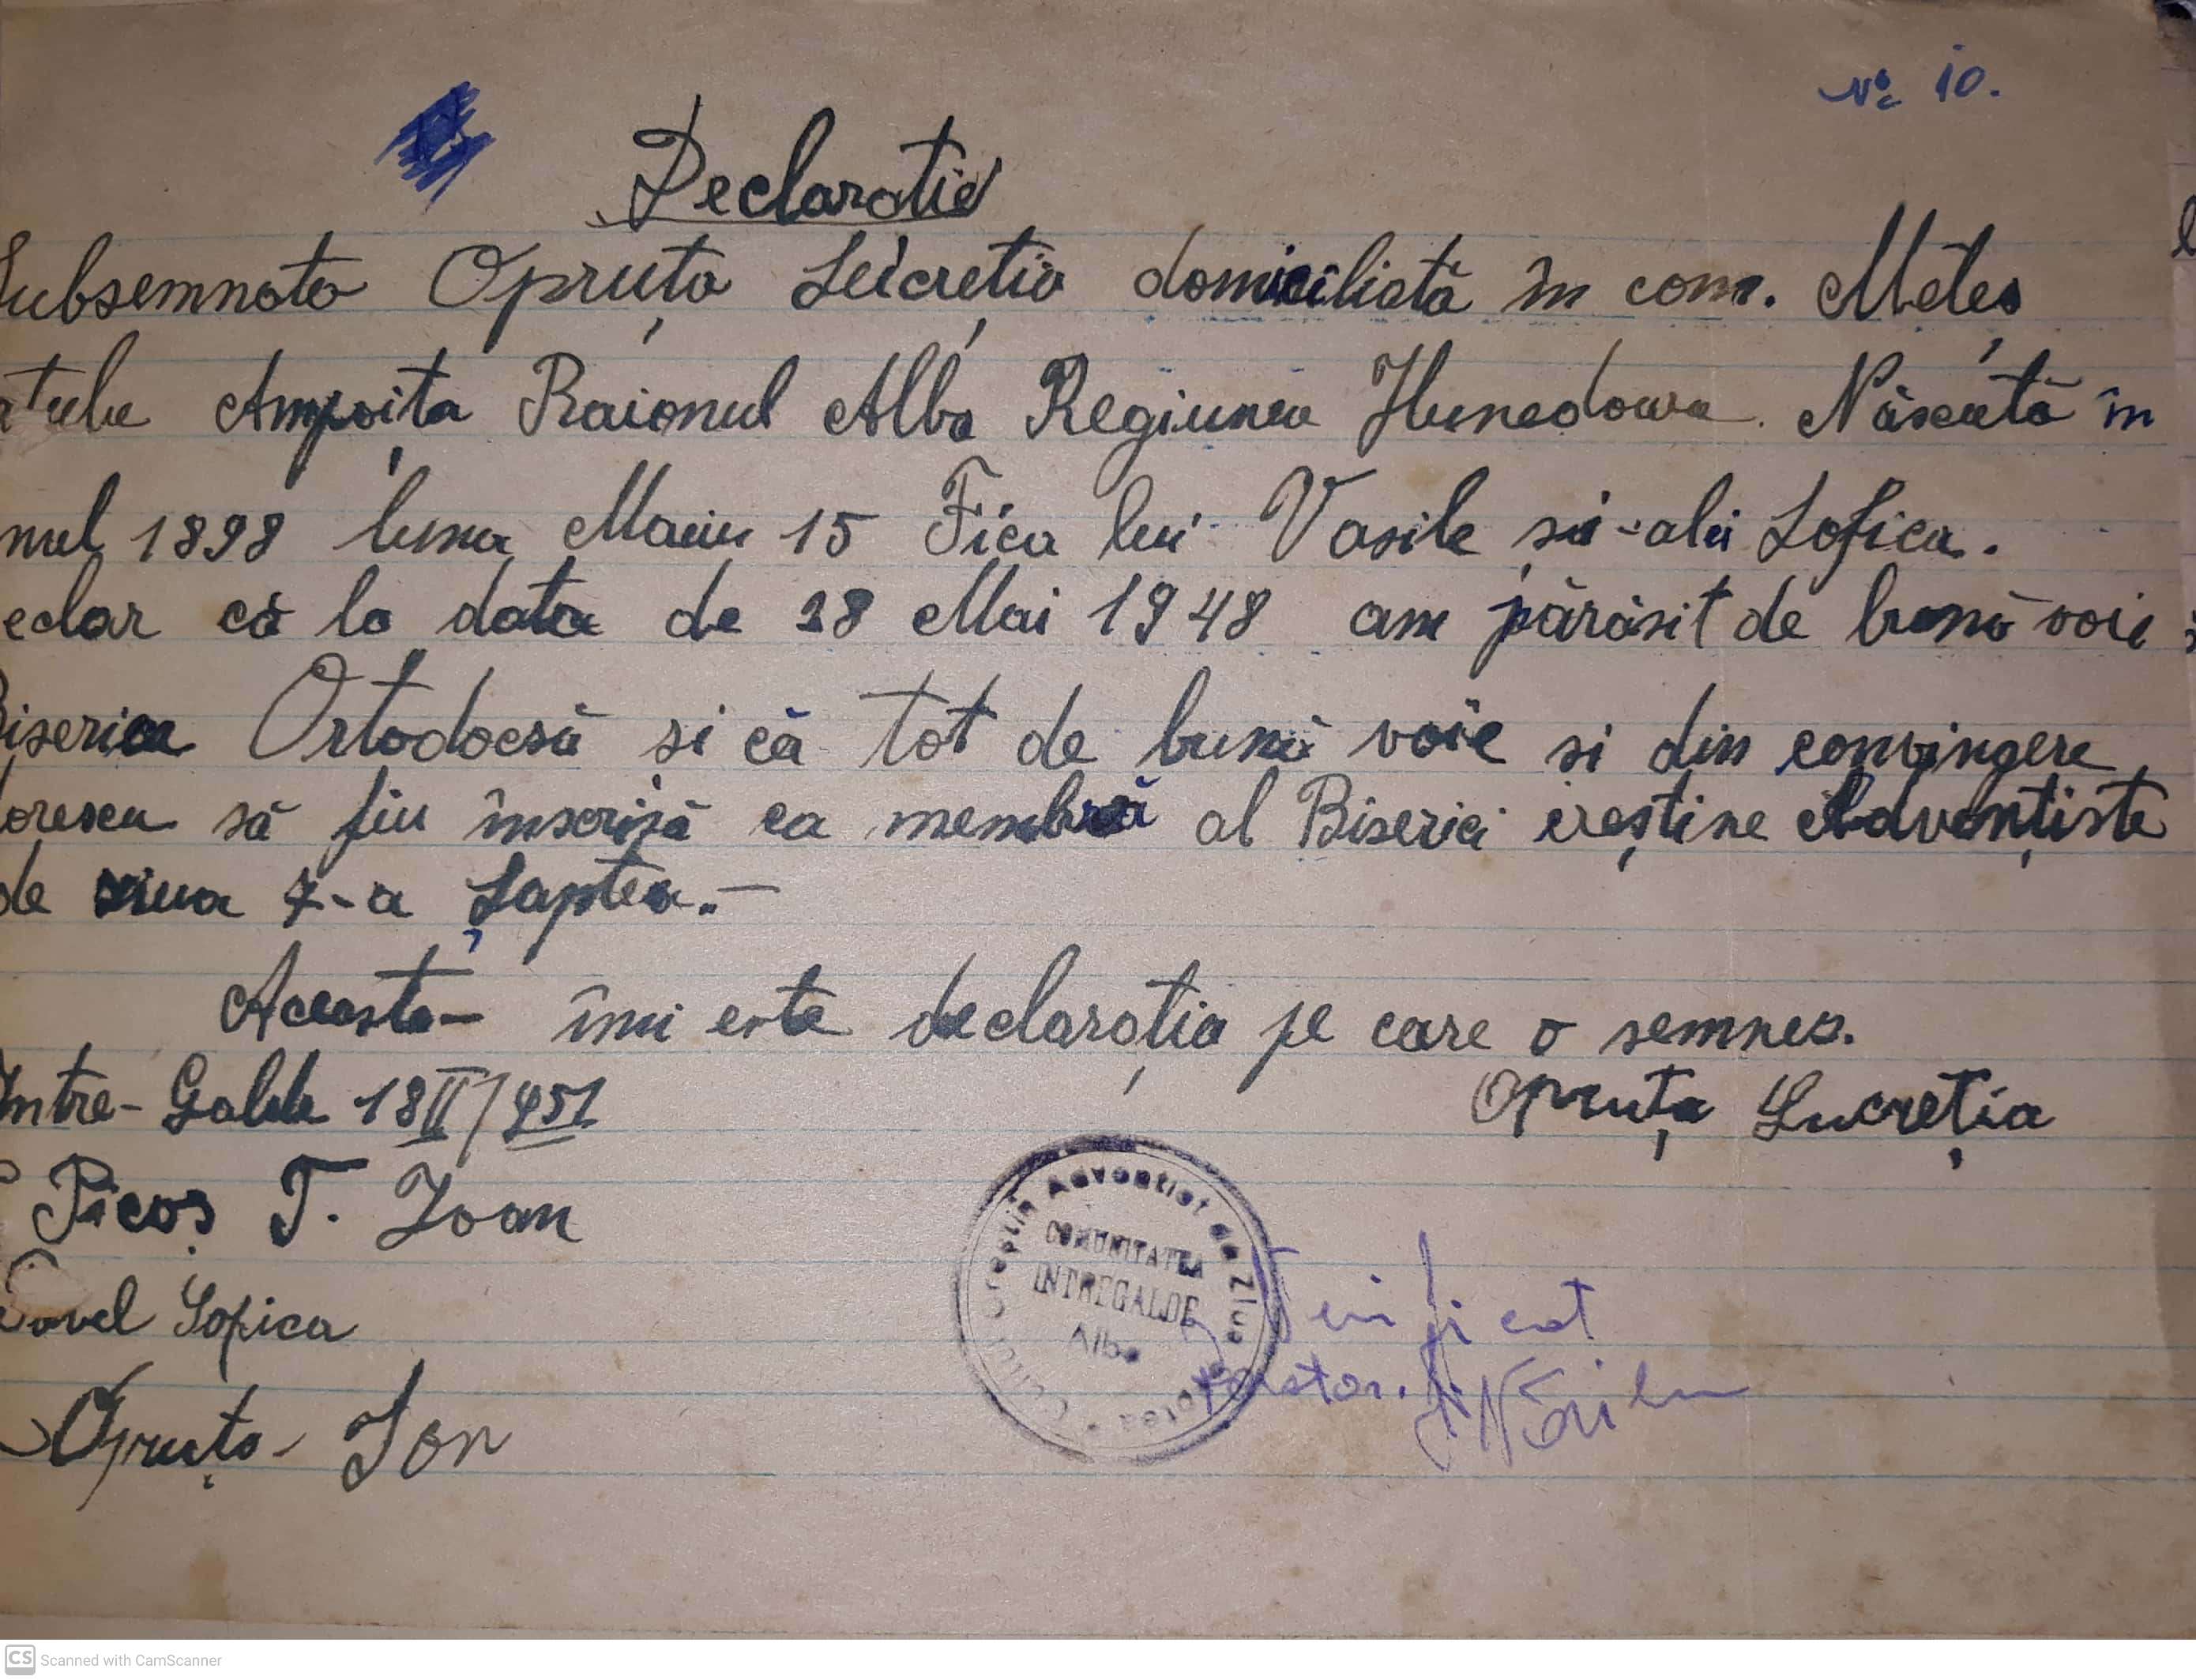 № 10.
Declaratie
Subsemnata Opruța Lucreția domiciliată în com. Meteș
Ampoița Raionul Alba Regiunea Hunedoara. Născută în
nul 1898 luna Maiu 15 Fica lui Vasile și-alu Sofica.
eclar că la data de 28 Mai 1948 am părăsit de bună voie
Biserica Ortodocsă si că tot de bună voie si din convingere
dorescu să fiu înscrisă ca membră al Biserici creștine Advențiste
de ziua 7-a Șaptea.-
Aceasta- îmi este declarația pe care o semnez.
Intre-Galde 18 II/951
Opruța Lucreția
Picoș T. Ioan
Pavel Sofica
Opruța Ion
Cultul Creștin Adventist de Ziua Șaptea
COMUNITATEA
INTREGALDE
Alba
Verificat
pastor.
CS Scanned with CamScanner